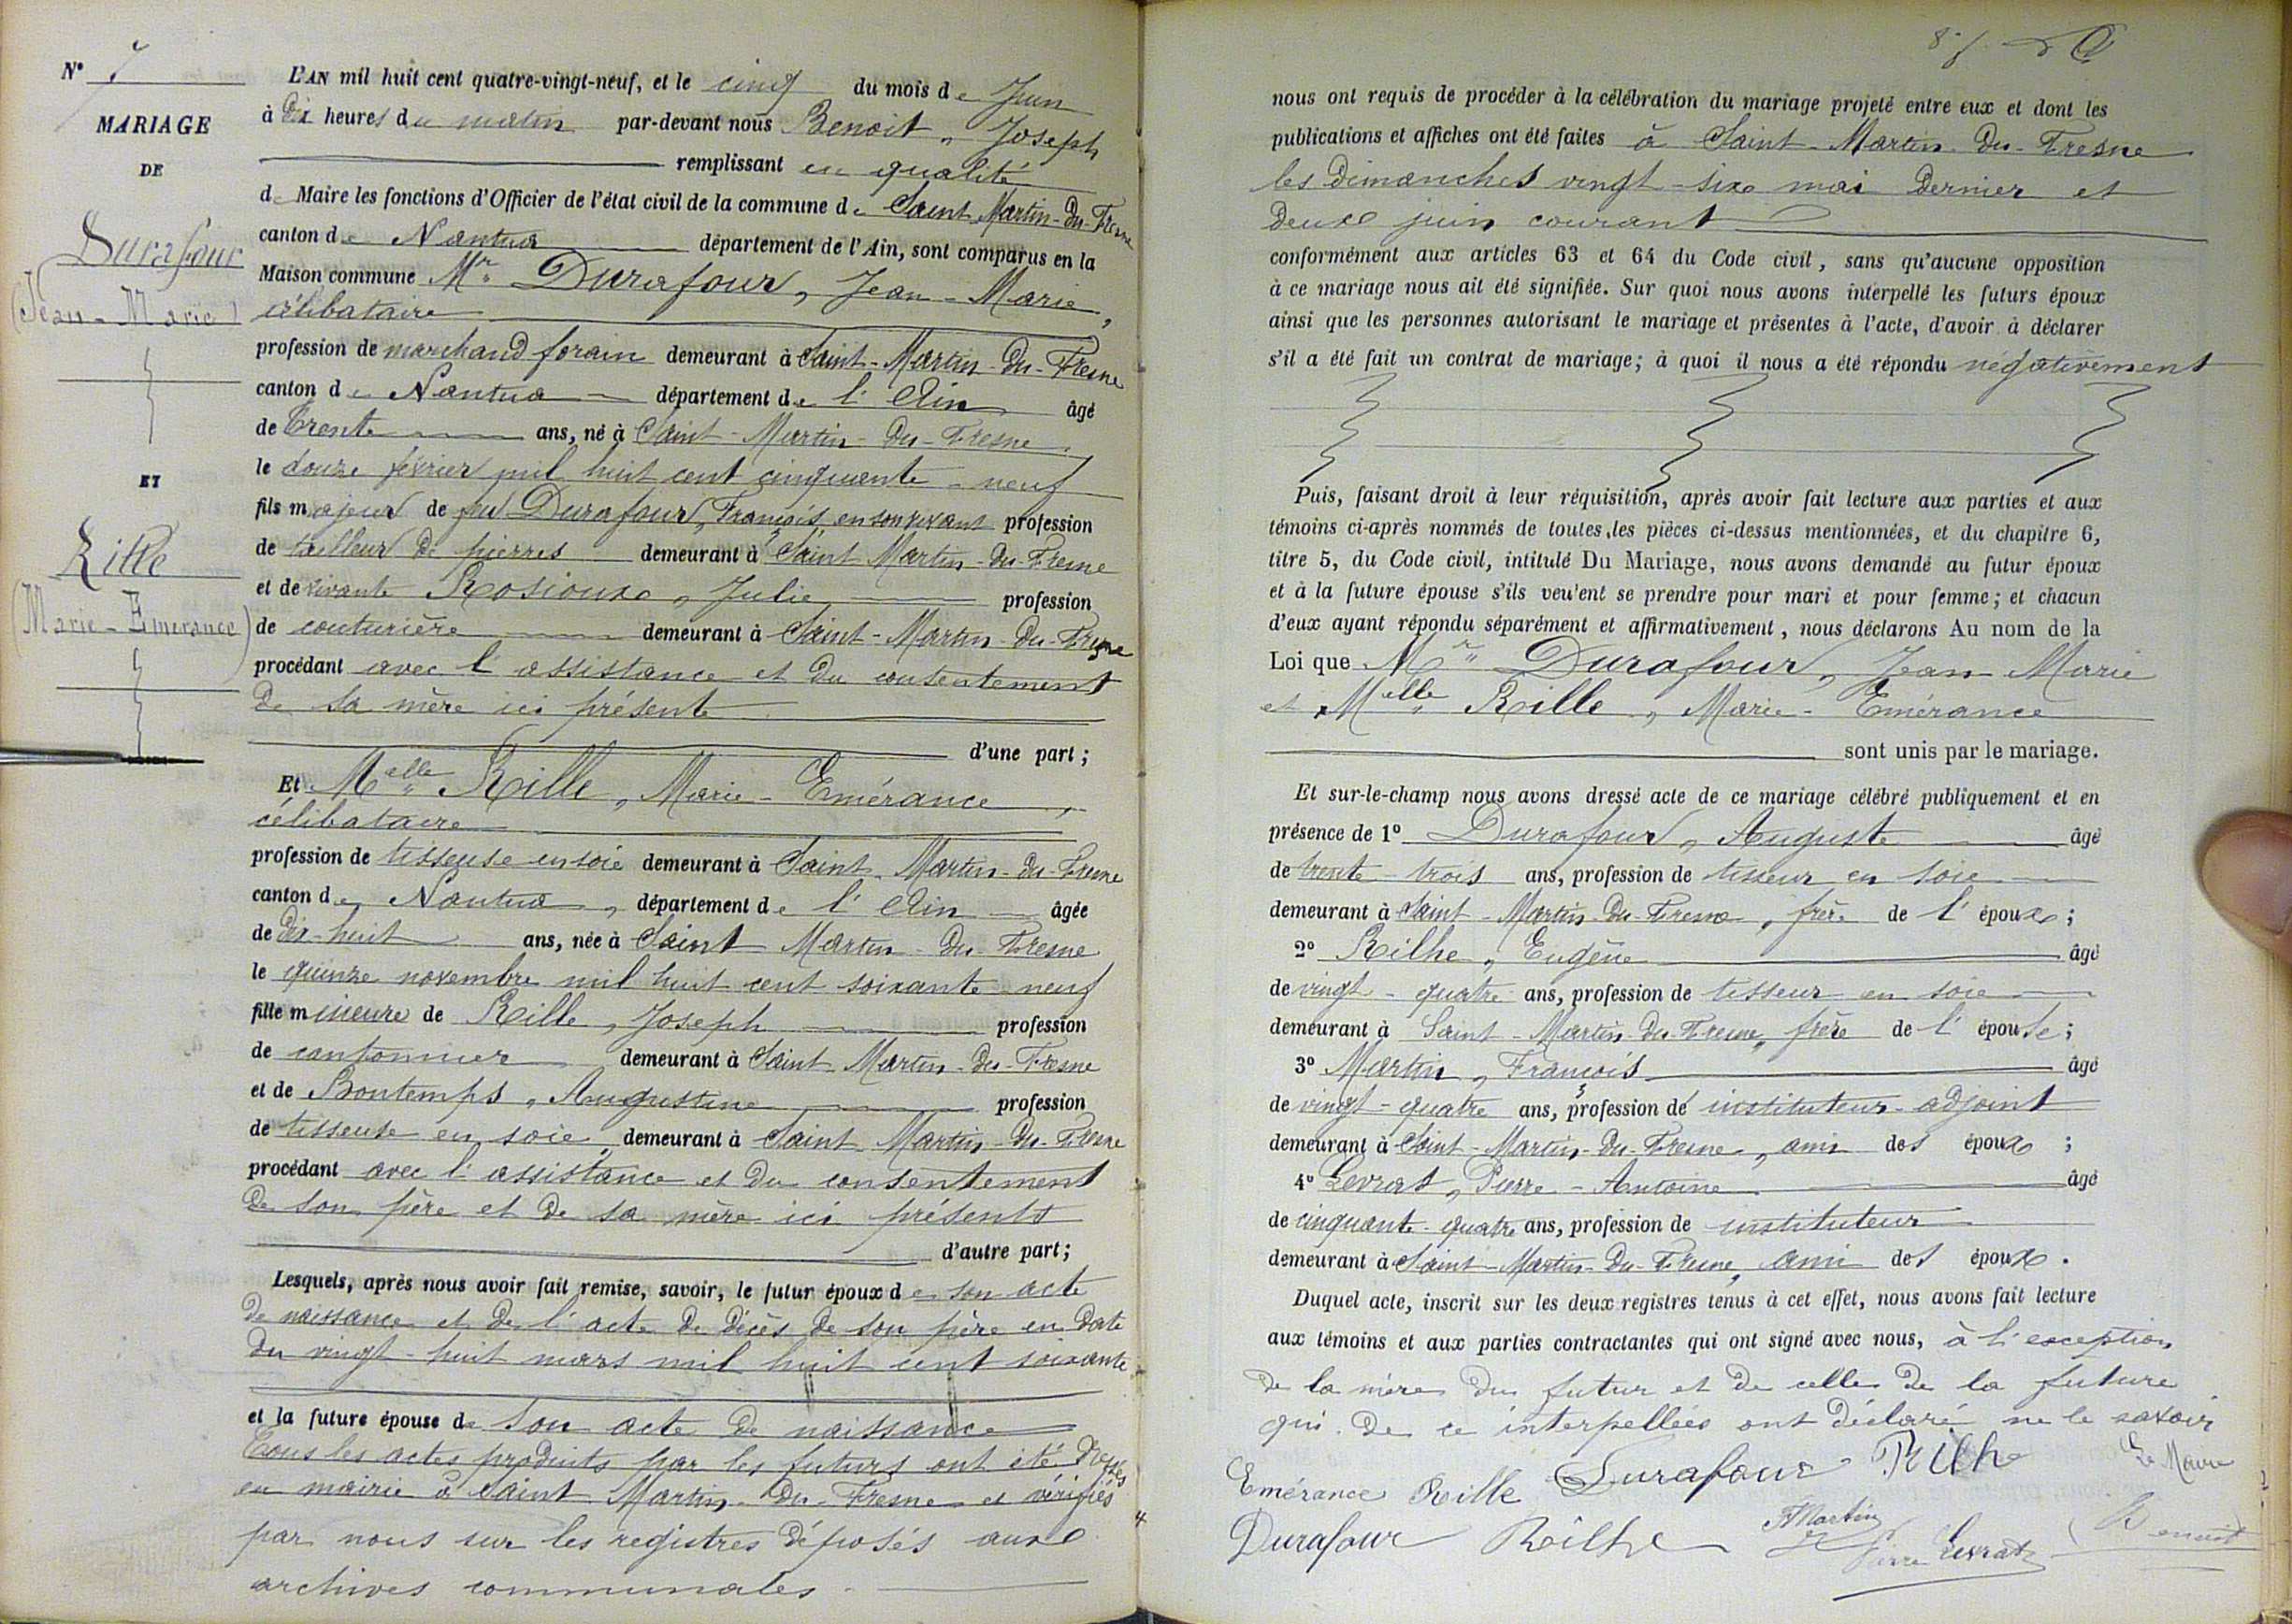 N° 7
MARIAGE
DE
Durafour
(Jean-Marie)
ET
Rille
(Marie-Emérance)
L'AN mil huit cent quatre-vingt-neuf, et le cinq du mois de Juin
à dix heures du matin par-devant nous Benoit, Joseph
remplissant en qualité
de Maire les fonctions d'Officier de l'état civil de la commune de Saint Martin-du-Fresne
canton de Nantua département de l'Ain, sont comparus en la
Maison commune Mr Durafour, Jean-Marie,
célibataire
profession de marchand forain demeurant à Saint-Martin-du-Fresne
canton de Nantua département de l'Ain âgé
de trente ans, né à Saint-Martin-du-Fresne
le douze février mil huit cent cinquante-neuf
fils majeur de feu Durafour, François, en son vivant profession
de tailleur de pierres demeurant à Saint Martin-du-Fresne
et de vivante Rosioux, Julie profession
de couturière demeurant à Saint-Martin-du-Fresne
procédant avec l'assistance et du consentement
de sa mère ici présente
d'une part;
Et Melle Rille, Marie-Emérance,
célibataire
profession de tisseuse en soie demeurant à Saint-Martin-du-Fresne
canton de Nantua, département de l'Ain âgée
de dix-huit ans, née à Saint Martin-du-Fresne
le quinze novembre mil huit cent soixante-neuf
fille mineure de Rille, Joseph profession
de cantonnier demeurant à Saint Martin-du-Fresne
et de Bontemps, Augustine profession
de tisseuse en soie, demeurant à Saint-Martin-du-Fresne
procédant avec l'assistance et du consentement
de son père et de sa mère ici présents
d'autre part;
Lesquels, après nous avoir fait remise, savoir, le futur époux de son acte
de naissance et de l'acte de décès de son père en date
du vingt-huit mars mil huit cent soixante
et la future épouse de son acte de naissance
Tous les actes produits par les futurs ont été dressés
en mairie à Saint Martin-du-Fresne et vérifiés
par nous sur les registres déposés aux
archives communales.
nous ont requis de procéder à la célébration du mariage projeté entre eux et dont les
publications et affiches ont été faites à Saint-Martin-du-Fresne
les dimanches vingt-six mai dernier et
deux juin courant
conformément aux articles 63 et 64 du Code civil, sans qu'aucune opposition
à ce mariage nous ait été signifiée. Sur quoi nous avons interpellé les futurs époux
ainsi que les personnes autorisant le mariage et présentes à l'acte, d'avoir à déclarer
s'il a été fait un contrat de mariage; à quoi il nous a été répondu négativement
Puis, faisant droit à leur réquisition, après avoir fait lecture aux parties et aux
témoins ci-après nommés de toutes les pièces ci-dessus mentionnées, et du chapitre 6,
titre 5, du Code civil, intitulé Du Mariage, nous avons demandé au futur époux
et à la future épouse s'ils veu'ent se prendre pour mari et pour femme; et chacun
d'eux ayant répondu séparément et affirmativement, nous déclarons Au nom de la
Loi que Mr Durafour, Jean Marie
et Melle Rille, Marie-Emérance
sont unis par le mariage.
Et sur-le-champ nous avons dressé acte de ce mariage célébré publiquement et en
présence de 1° Durafour, Auguste âgé
de trente-trois ans, profession de tisseur en soie
demeurant à Saint-Martin-du-Fresne, frère de l'époux;
2° Rilhe, Eugène âgé
de vingt-quatre ans, profession de tisseur en soie
demeurant à Saint-Martin-du-Fresne, frère de l'épouse;
3° Martin, François âgé
de vingt-quatre ans, profession de instituteur-adjoint
demeurant à Saint-Martin-du-Fresne, ami des époux;
4° Levrat, Pierre-Antoine âgé
de cinquante-quatre ans, profession de instituteur
demeurant à Saint-Martin-du-Fresne, ami des époux.
Duquel acte, inscrit sur les deux registres tenus à cet effet, nous avons fait lecture
aux témoins et aux parties contractantes qui ont signé avec nous, à l'exception
de la mère du futur et de celle de la future
qui de ce interpellées ont déclaré ne le savoir
Emérance Rille Durafour Rilhe Le Maire
Durafour Rilhe F Martin Pierre Levrat Benoit